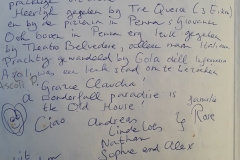 Heerlijk gegeten bij Tre Querce (3 Eiken)
en bij de pizzeria in Penna S. Giovanni
Ook boven in Penna erg leuk gegeten
bij Theatro Belvedere, alleen maar Italianen
Prachtig gewandeld bij Gola dell'Infernaccio
Ascoli P. is een leuk stad om te bezoeken
Grazie Claudia!
A Wonderfull paradise is
the Old House!
Ciao Andreas familie
Lindeloes & Rose
Nathan
Sophie and Alex!